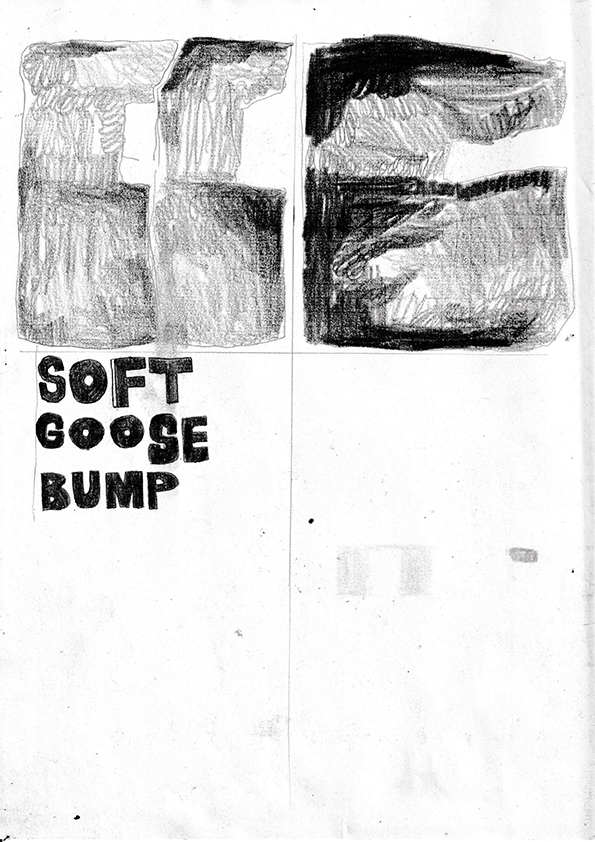 SOFT
GOOSE
BUMP